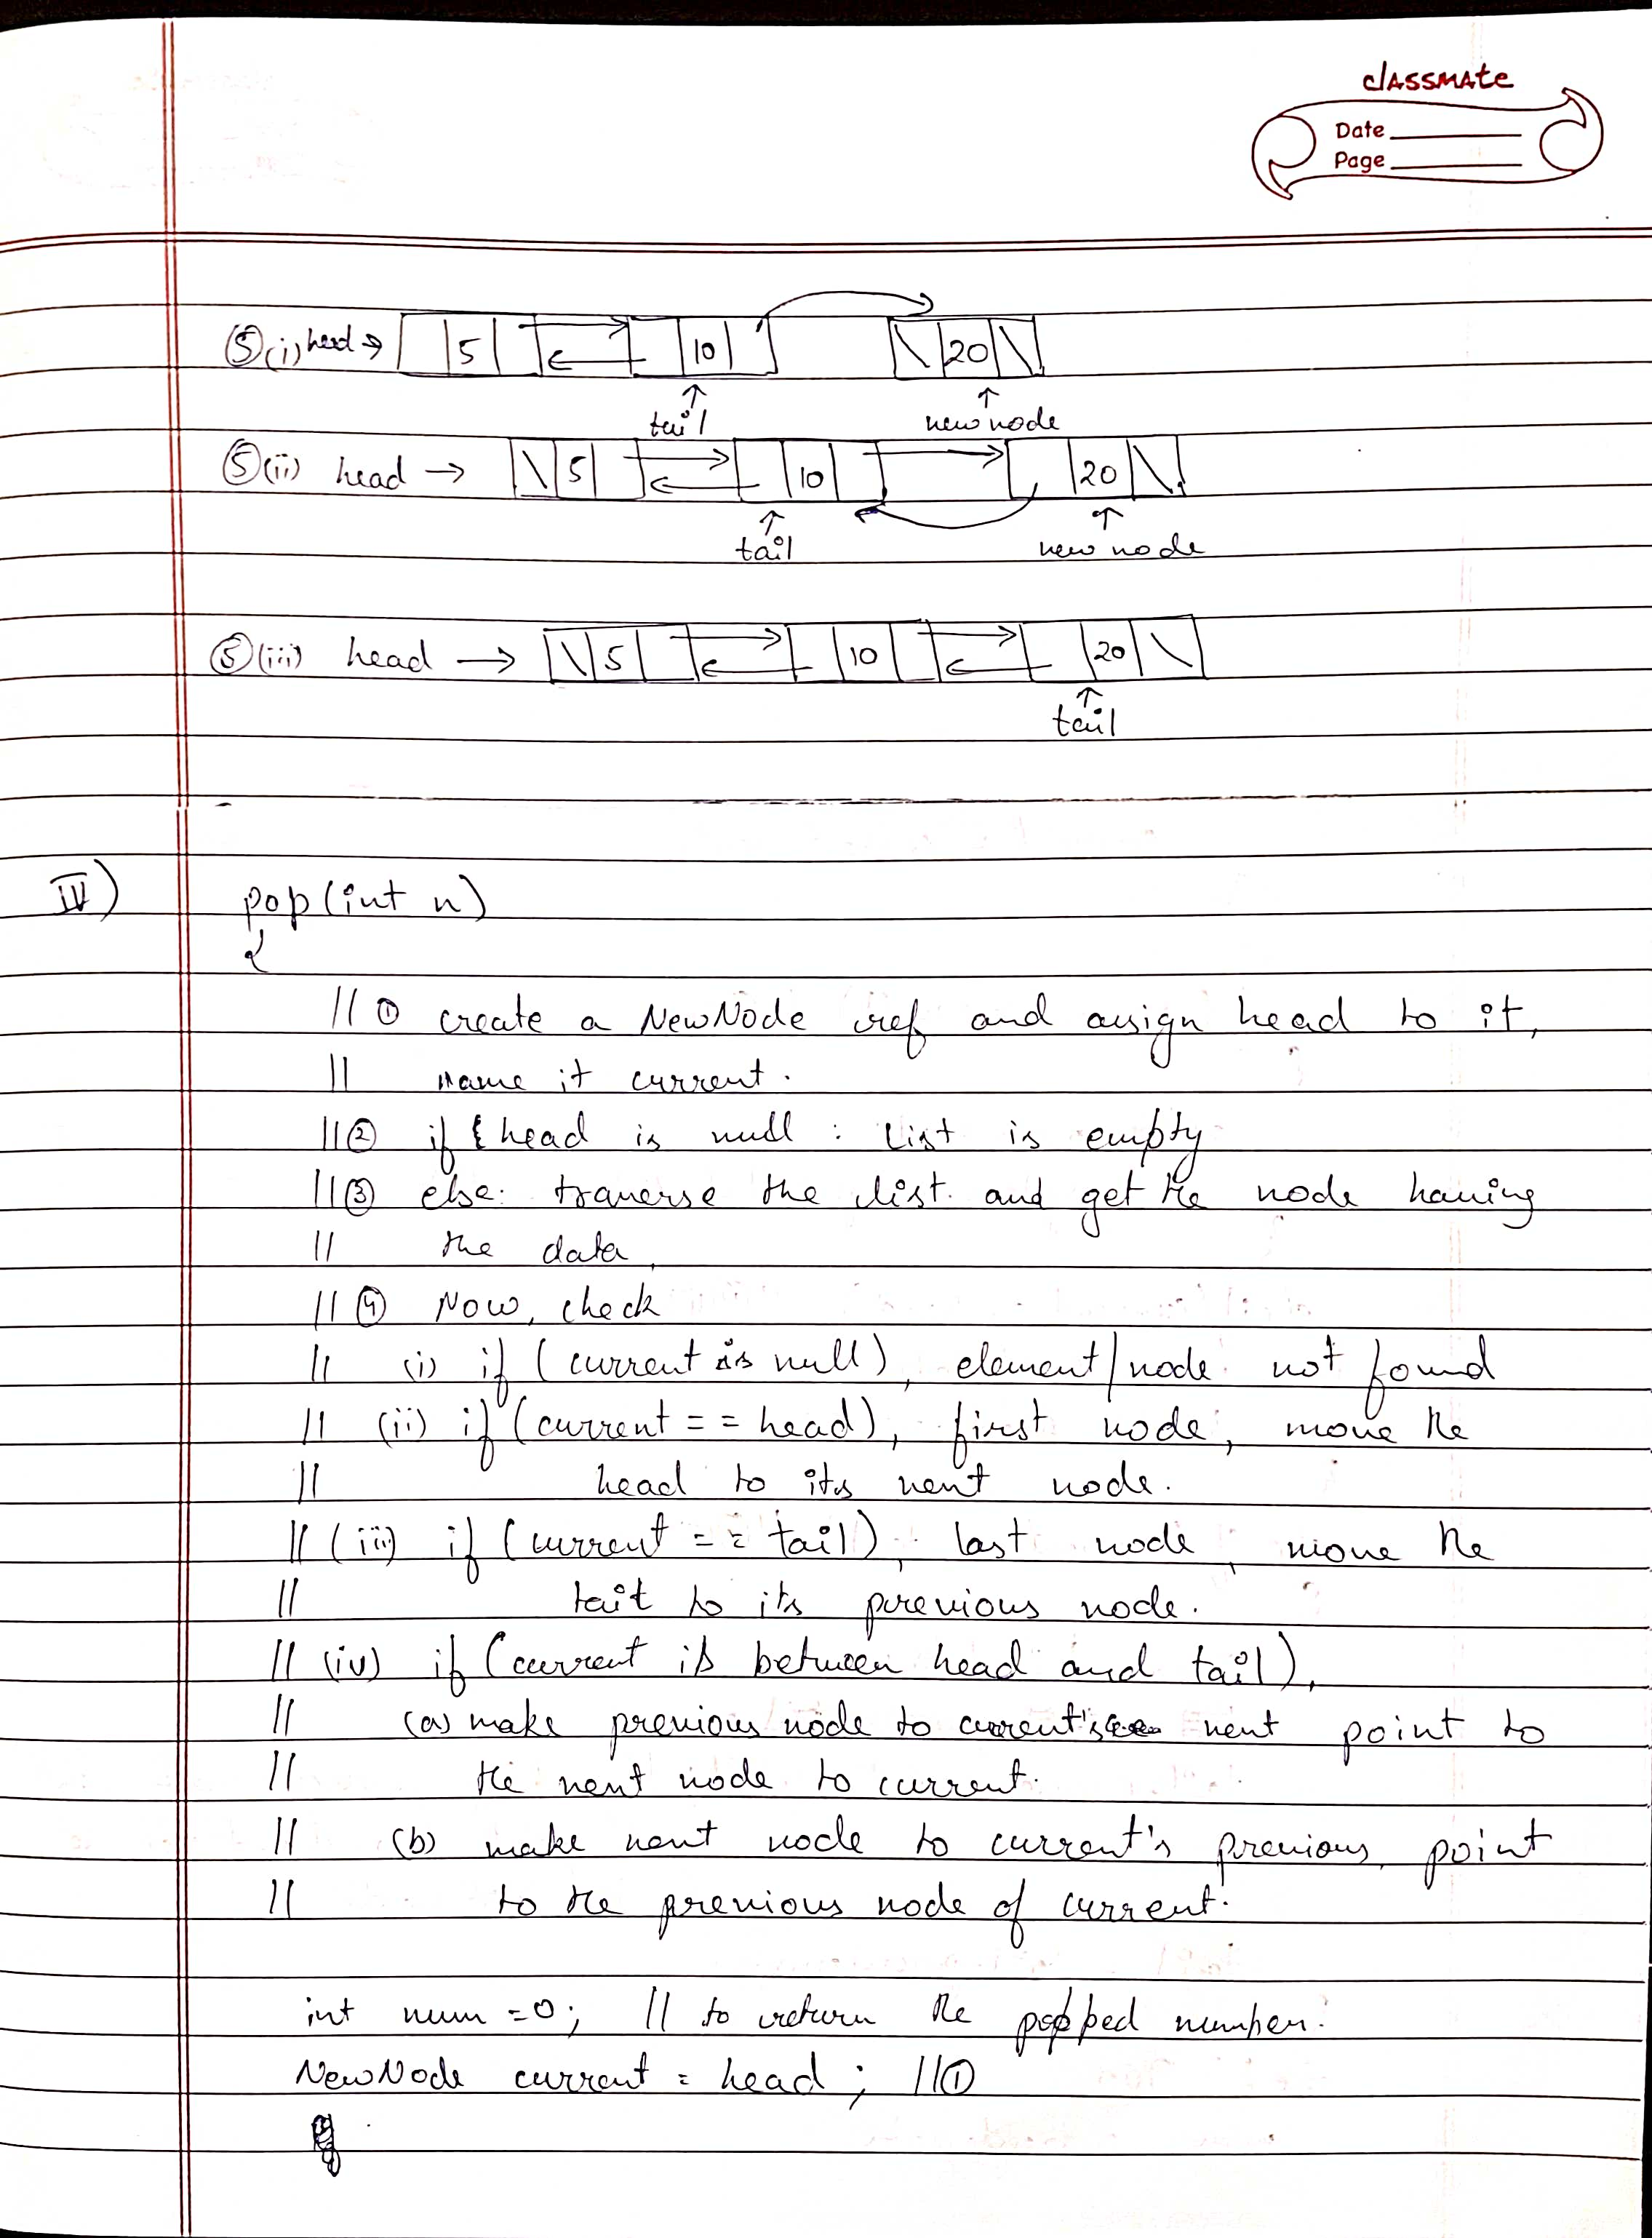 classmate
Date
Page
⑤(i) head → 5 10 \ 20 \
tail new node
⑤(ii) head → \ 5 10 20 \
tail new node
⑤(iii) head → \ 5 10 20 \
tail
IV) pop(int n)
{
// ① create a NewNode ref and assign head to it,
// name it current.
// ② if head is null : list is empty
// ③ else: traverse the list. and get the node having
// the data,
// ④ Now, check
// (i) if (current is null), element/node not found
// (ii) if (current == head), first node, move the
// head to its next node.
// (iii) if (current == tail), last node, move the
// tail to its previous node.
// (iv) if (current is between head and tail),
// (a) make previous node to current's next point to
// the next node to current.
// (b) make next node to current's previous point
// to the previous node of current.
int num = 0; // to return the popped number.
NewNode current = head; //①